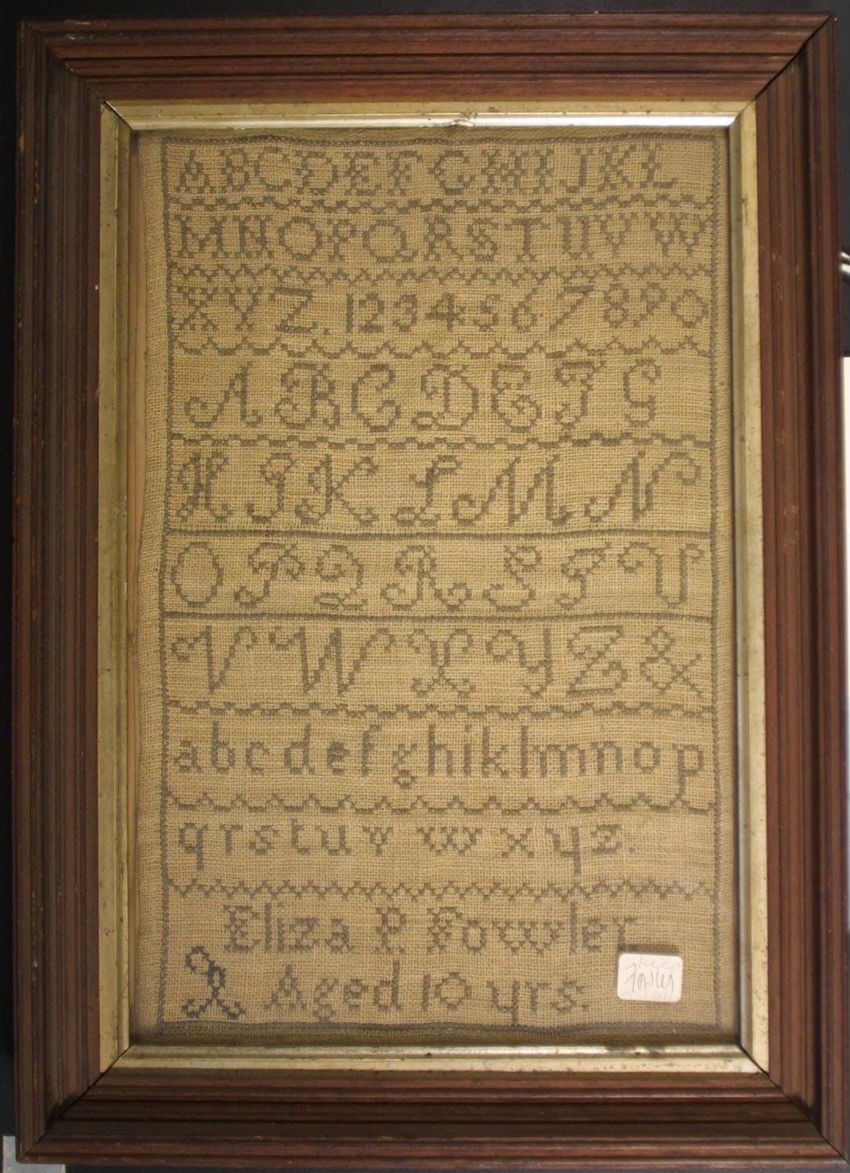 ABCDEFGHIJKL
MNOPQRSTUVW
XYZ. 1234567890
ABCDEFG
HIKLMN
OPQRSTU
VWXYZ&
abcdefghiklmnop
qrstuvwxyz.
Eliza P. Fowler
Aged 10 yrs.